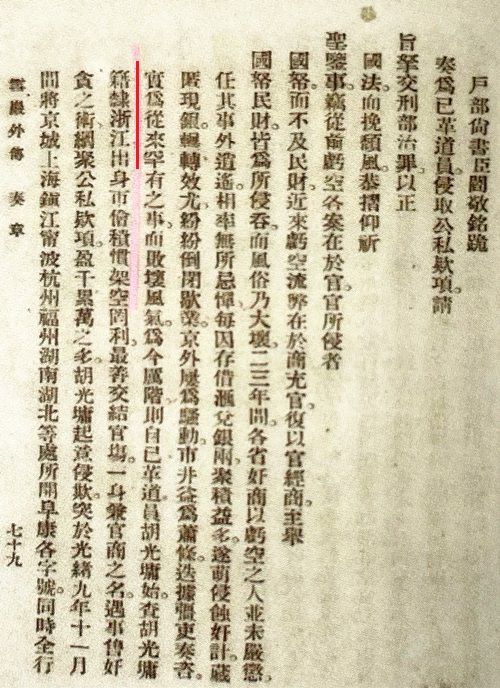 戶部尚書臣閻敬銘跪
奏爲已革道員侵取公私欵項請
旨拏交刑部治罪以正
國法而挽頹風恭摺仰祈
聖鑒事竊從前虧空各案在於官官所侵者
國帑而不及民財近來虧空流弊在於商充官復以官經商主舉
國帑民財皆爲所侵吞而風俗乃大壞二三年間各省奸商以虧空之人並未嚴懲
任其事外逍遙相率無所忌憚每因存借滙兌銀兩聚積益多遂萌侵蝕奸計藏
匿現銀輾轉效尤紛紛倒閉歇業京外屢爲騷動市井益爲蕭條迭據疆吏奏咨
實爲從來罕有之事而敗壞風氣爲今厲階則自已革道員胡光墉始查胡光墉
籍隸浙江出身市儈積慣架空罔利最善交結官塲一身兼官商之名遇事售奸
貪之術網聚公私欵項盈千累萬之多胡光墉起意侵欺突於光緒九年十一月
間將京城上海鎮江甯波杭州福州湖南湖北等處所開阜康各字號同時全行
雲巖外傳 奏章 七十九